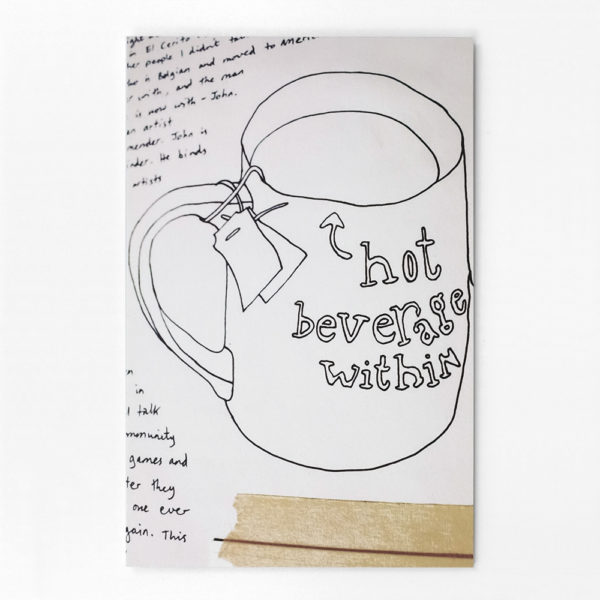 in El Cerito
her people I didn't
is Belgian and moved to Americ
with, and the man
is now with - John.
an artist
mender. John is
inder. He binds
artists
hot
beverage
within
in
I talk
mmunity
games and
ter they
one ever
gain. This